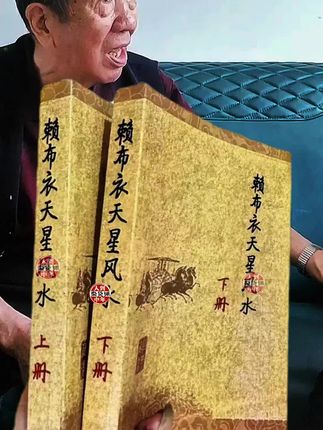 赖布衣天星风水
上册
赖布衣天星风水
下册
赖布衣天星风水
下册